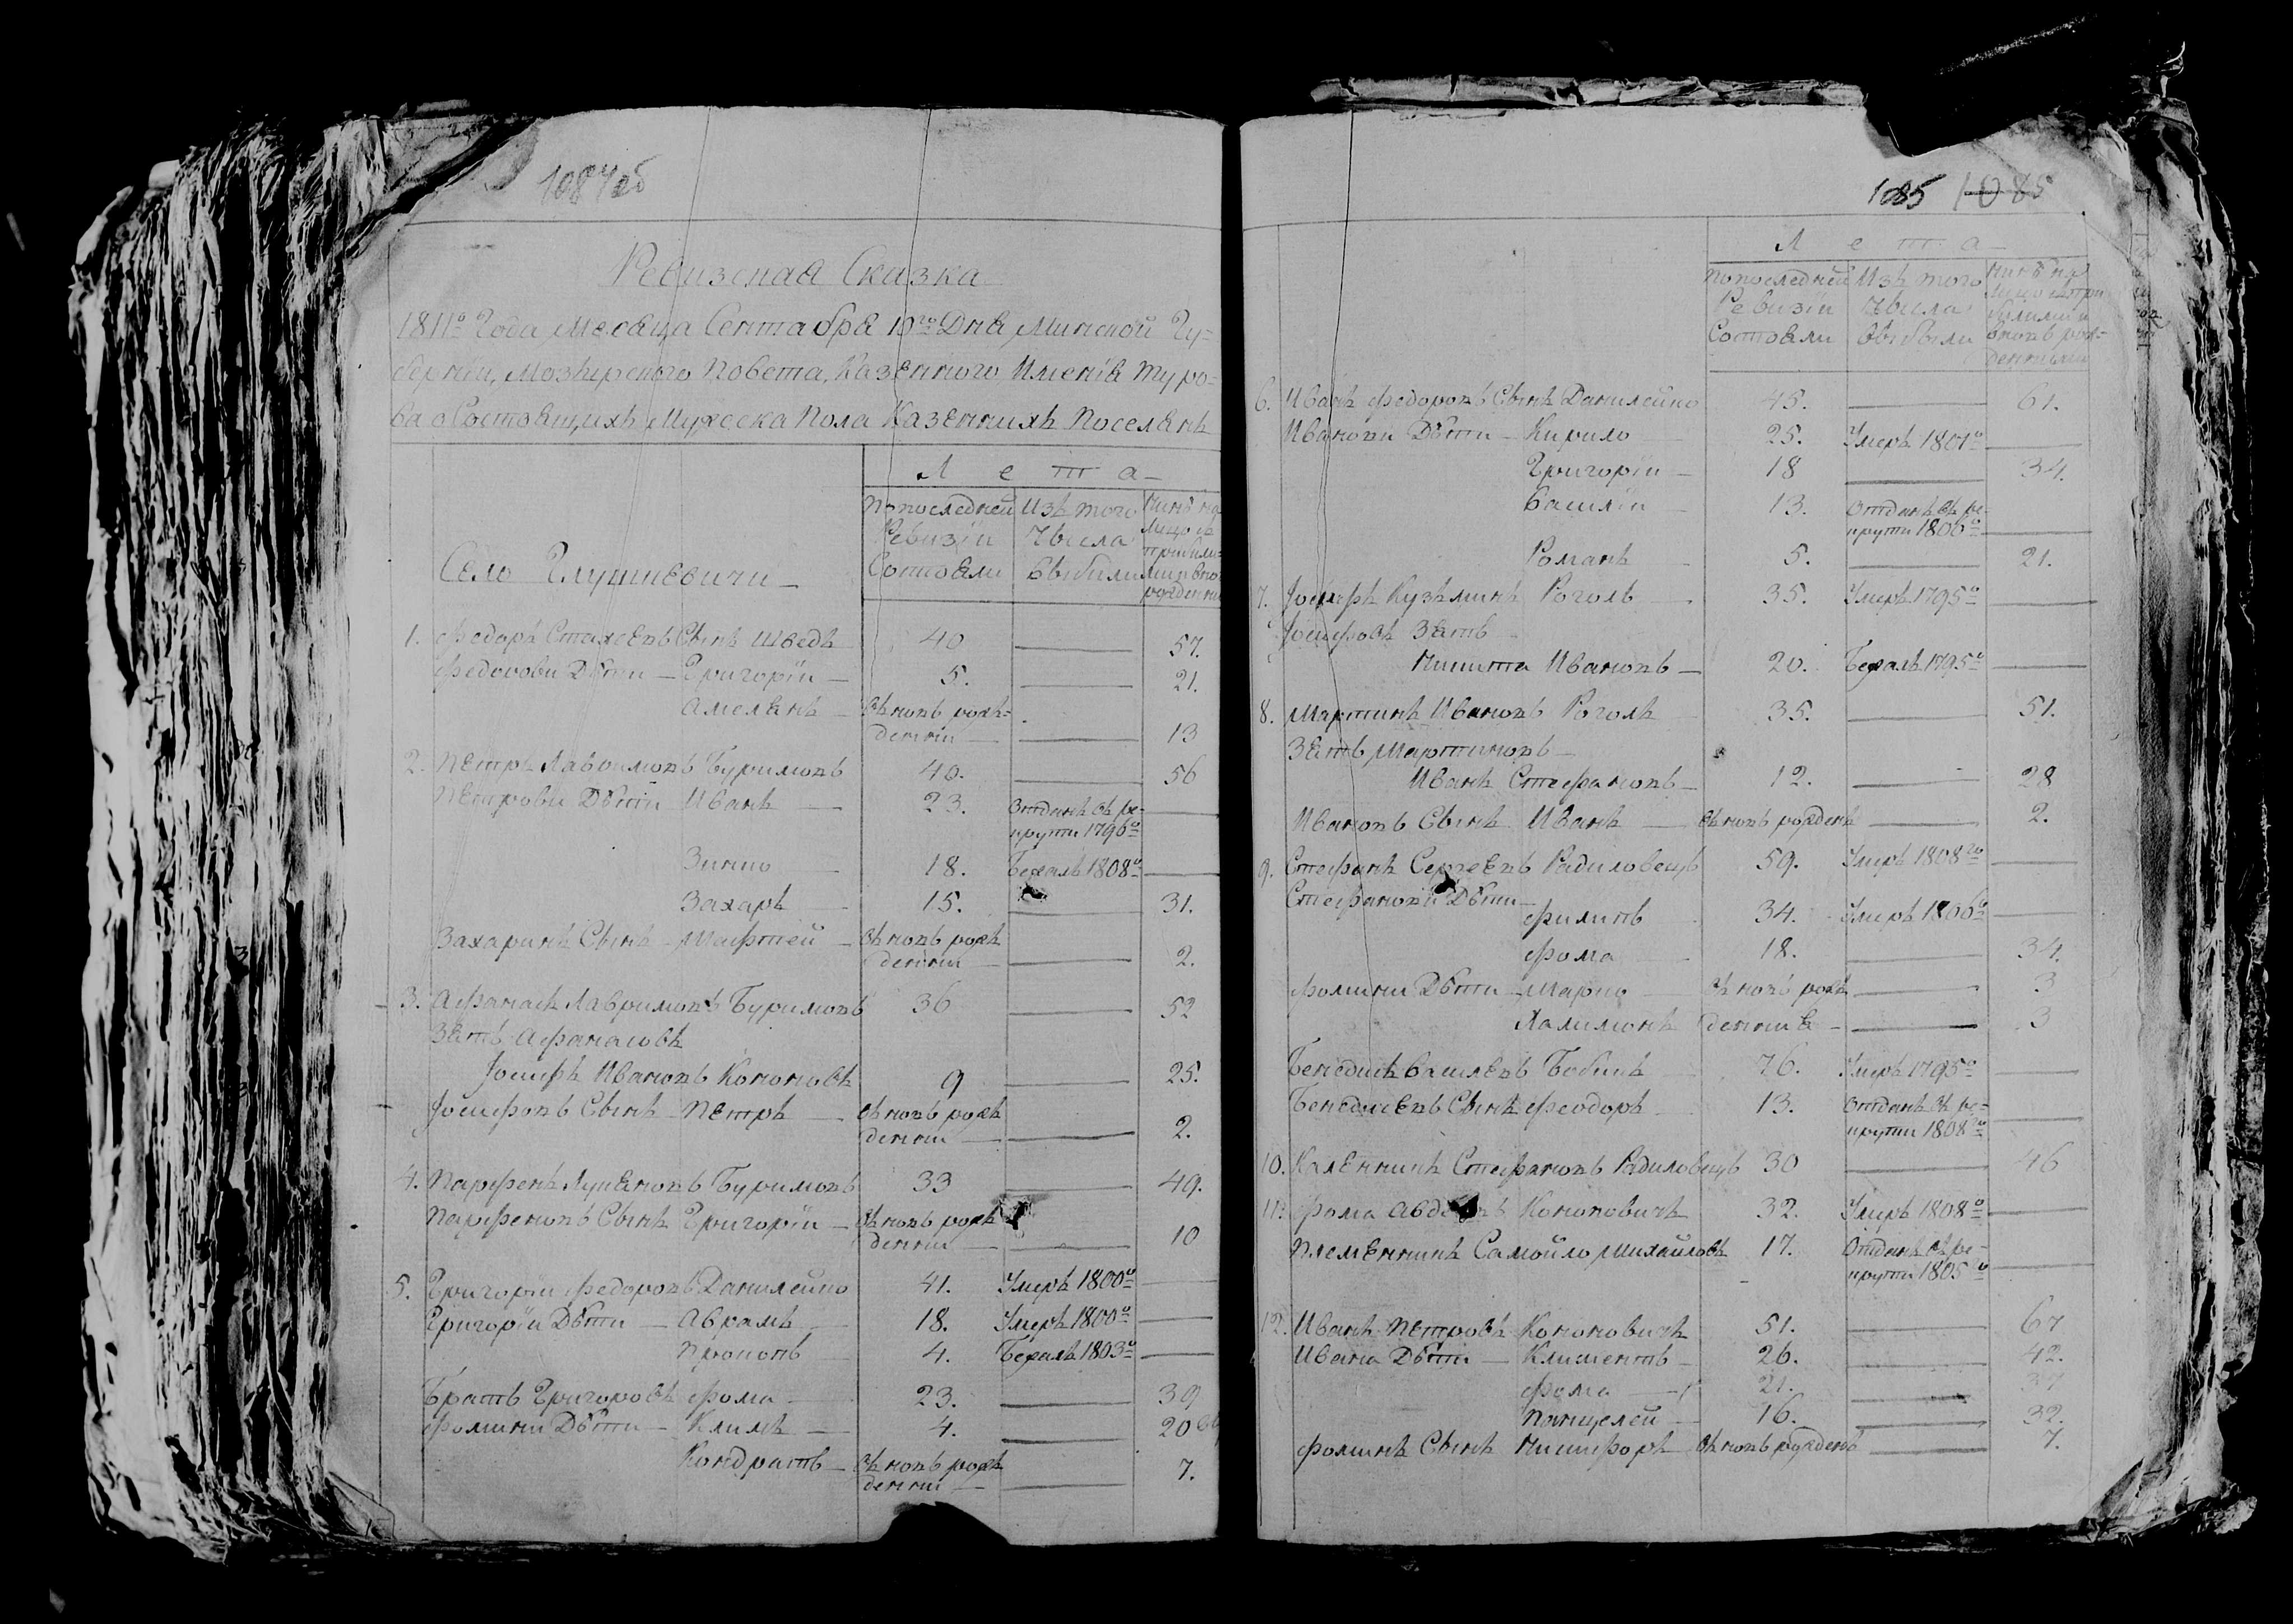 1084об
Ревизсная Сказка
1811о Года Месяца Сентабря 10го Дня Минской Гу-
бернии, Мозырского Повета, Казенного Имения Туро-
ва о Состоящихъ Мужеска Пола Казеннихъ Поселянъ
Село Глушкевичи
Л е т а
По последней Ревизiи Состояли
Изъ того Числа Выбили
1. Федоръ Стахеевъ Сынъ Шведъ 40 57.
Федорови Дѣти Григорiи 5. 21.
Амелянъ въ новъ рож- денни 13
2. Петръ Лавримовъ Буримовъ 40. 56
Петрови Дѣти Иванъ 23. Отданъ въ ре- крути 1796о
Зинко 18. Бежалъ 1808о
Захаръ 15. 31.
Захаринъ Сынъ Мафтей въ новъ рож денни 2.
3. Афанасъ Лавримовъ Буримовъ 36 52
Зять Афанасовъ
Иосифъ Ивановъ Кононовъ 9 25.
Иосифовъ Сынъ Петръ въ новъ рож денни 2.
4. Парфенъ Лукяновъ Буримовъ 33 49.
Парфеновъ Сынъ Григорiи въ новъ рож денни 10
5. Григорiи Федоровъ Данилейко 41. Умеръ 1800о
Григорiи Дѣти Аврамъ 18. Умеръ 1800о
Прокопъ 4. Бежалъ 1803о
Братъ Григоровъ Фома 23. 39
Фомини Дѣти Климъ 4. 20
Кондратъ въ новъ рож денни 7.
1085 1085
Л е т а
По последней Ревизiи Состояли
Изъ того Числа Выбыли
6. Иванъ Федоровъ Сынъ Данилейко 45. 61.
Иванови Дѣти Кирило 25. Умеръ 1801о
Григорiи 18 34.
Василiи 13. Отданъ въ ре- крути 1806о
Романъ 5. 21.
7. Иосифъ Кузьминъ Роголь 35. Умеръ 1795о
Иосифовъ Зять
Никита Ивановъ 20. Бежалъ 1795о
8. Мартинъ Ивановъ Роголь 35. 51.
Зять Мартиновъ
Иванъ Стефановъ 12. 28
Ивановъ Сынъ Иванъ въ новъ рожденъ 2.
9. Стефанъ Сергеевъ Радиловецъ 59. Умеръ 1808го
Стефанови Дѣти
Филипъ 34. Умеръ 1806о
Фома 18. 34.
Фомини Дѣти Марко въ новъ рож 3
Халимонъ денние 3
Бенедикъ Василевъ Бобикъ 76. Умеръ 1795о
Бенедикевъ Сынъ Феодоръ 13. Отданъ въ ре- крути 1808го
10. Каленникъ Стефановъ Радиловецъ 30 46
11. Фома Кононовичъ 32. Умеръ 1808о
Племенникъ Самойло Михайловъ 17. Отданъ въ ре- крути 1805о
12. Иванъ Петровъ Кононовичъ 51. 67
Ивана Дѣти Климентъ 26. 42.
Фома 21. 37
Панцелей 16. 32.
Фоминъ Сынъ Никифоръ въ новъ рожденъ 7.